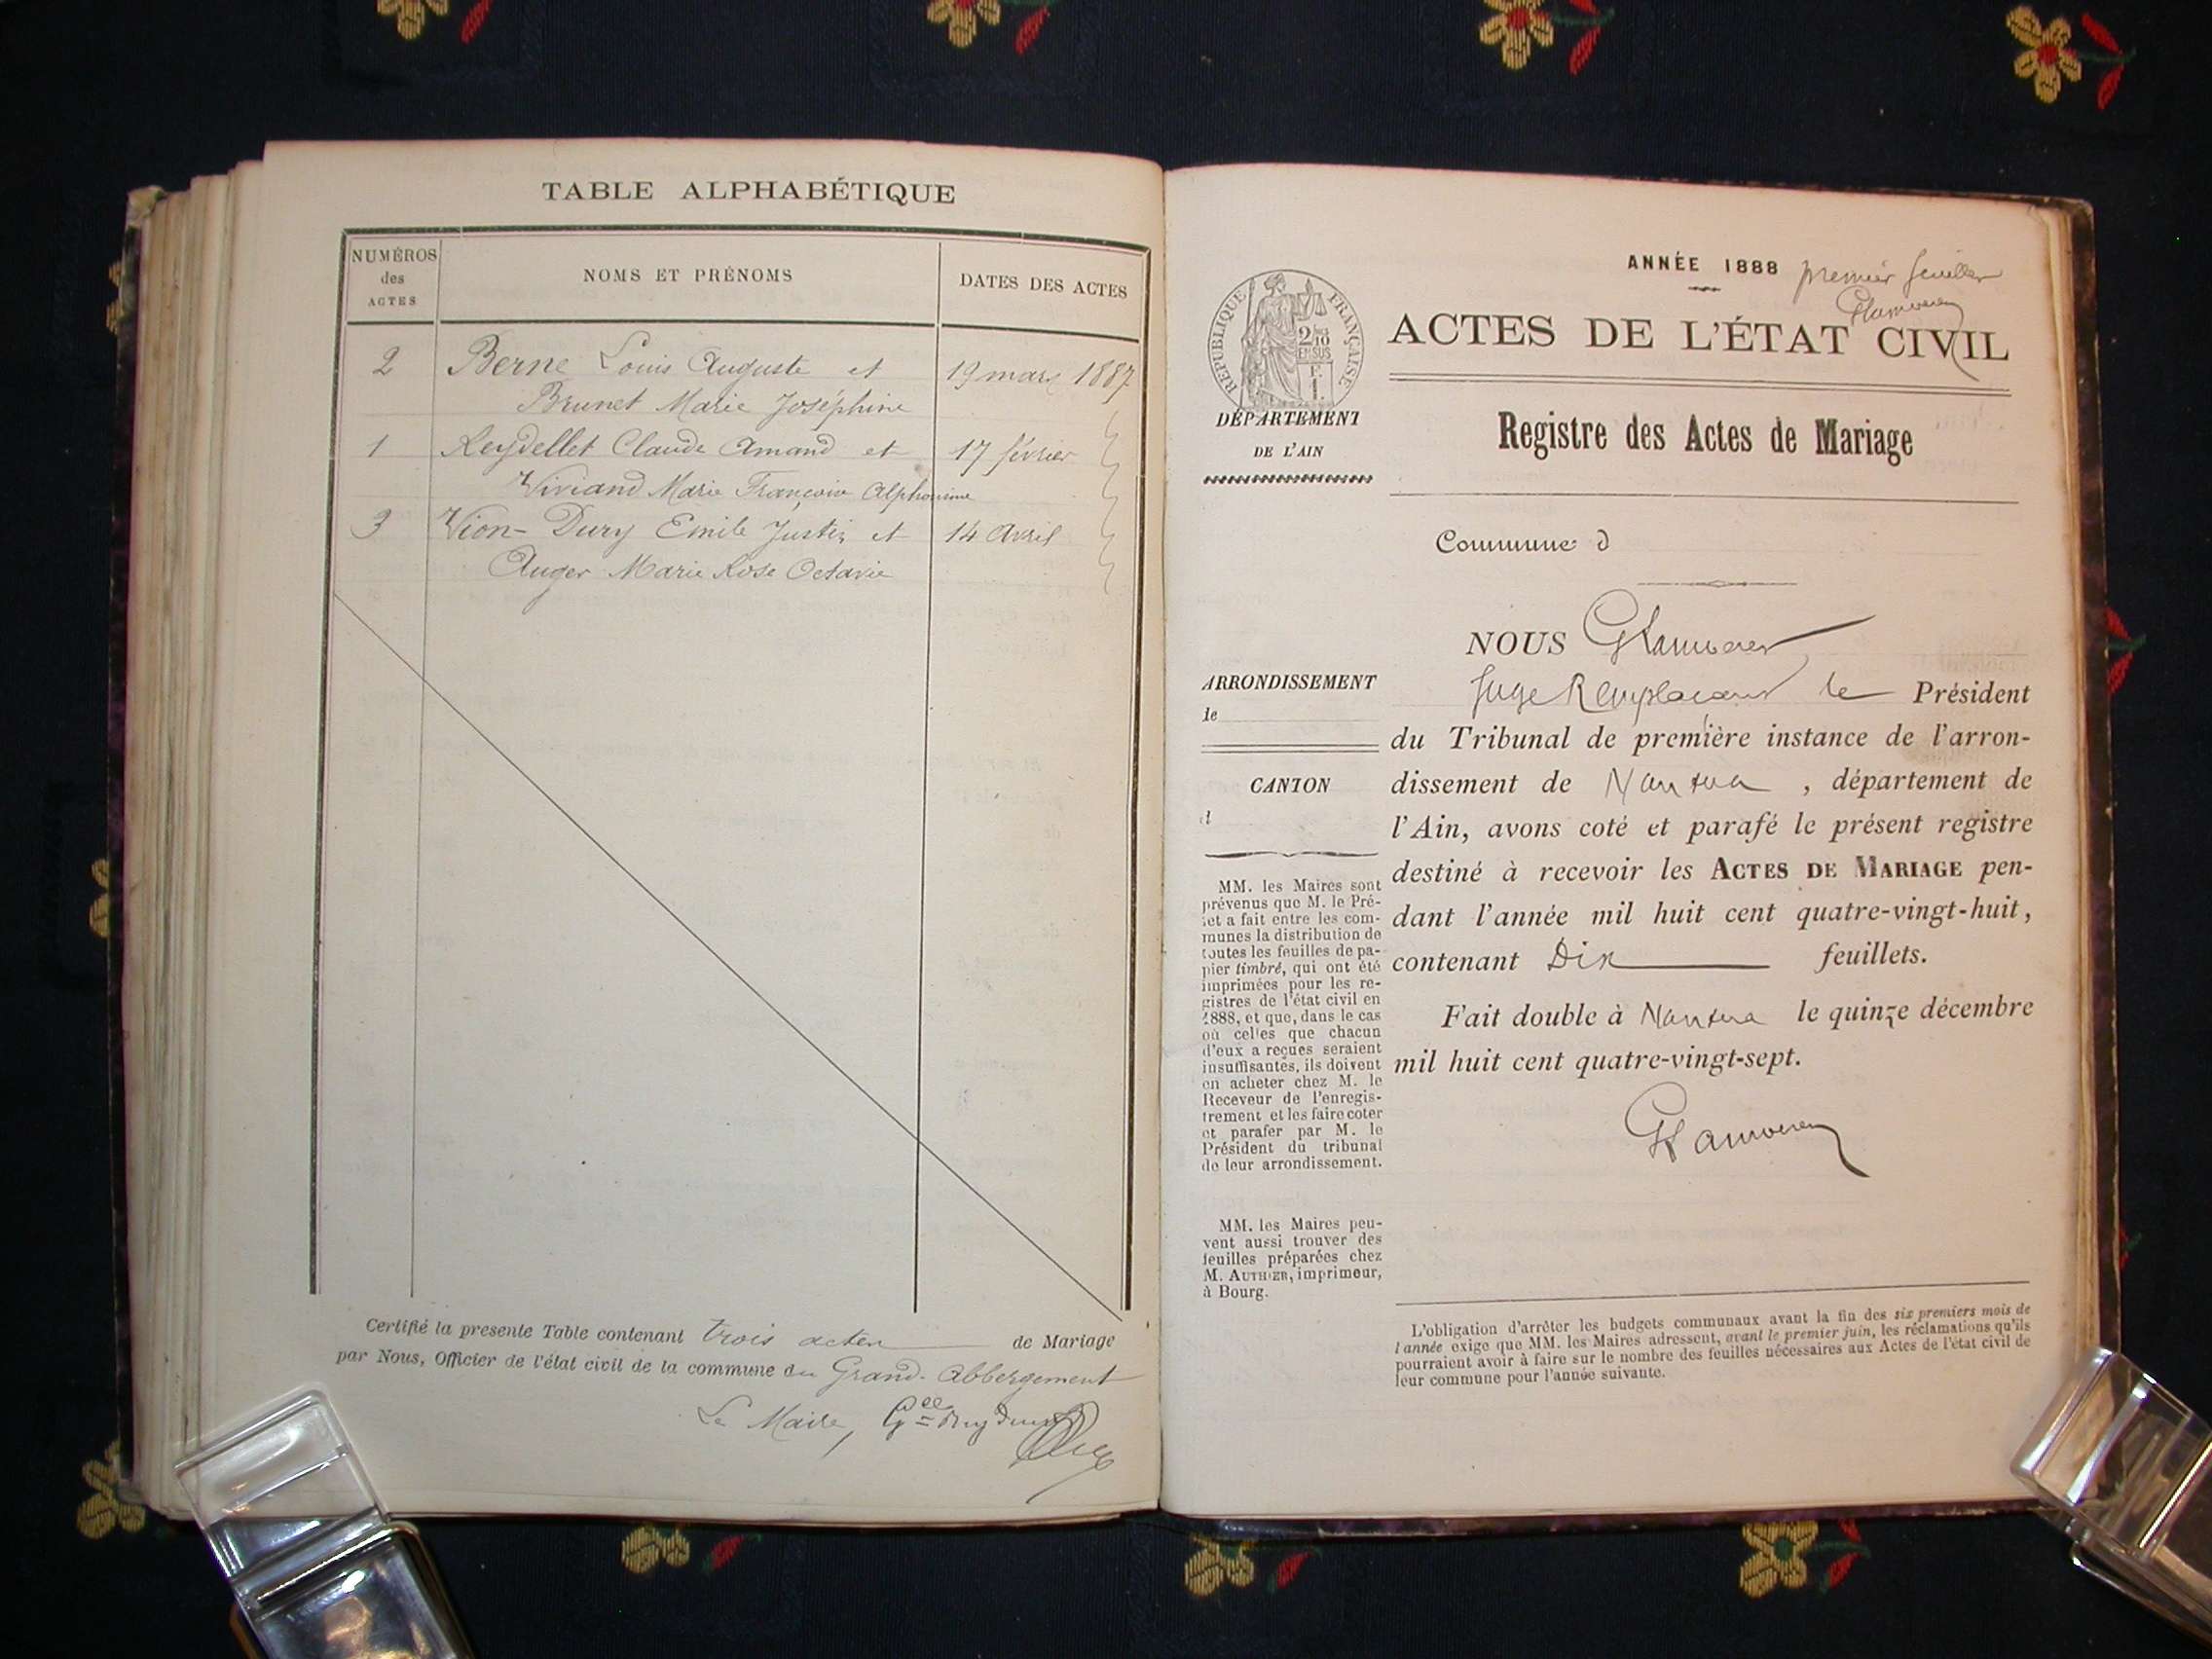 TABLE ALPHABÉTIQUE
NUMÉROS
des
ACTES
NOMS ET PRÉNOMS
DATES DES ACTES
2 Berne Louis Auguste et 19 mars 1887
Brunet Marie Joséphine
1 Reydellet Claude Amand et 17 février
Viviand Marie Françoise Alphonsine
3 Vion-Dury Emile Justin et 14 Avril
Auger Marie Rose Octavie
Certifié la présente Table contenant trois actes de Mariage
par Nous, Officier de l'état civil de la commune du Grand-Abbergement
Le Maire,
ANNÉE 1888 premier feuillet
ACTES DE L'ÉTAT CIVIL
RÉPUBLIQUE FRANÇAISE
2/10
EN SUS
F.
1.
DÉPARTEMENT
DE L'AIN
Registre des Actes de Mariage
Commune d
NOUS
Juge Remplaçant le Président
du Tribunal de première instance de l'arron-
dissement de Nantua, département de
l'Ain, avons coté et parafé le présent registre
destiné à recevoir les ACTES DE MARIAGE pen-
dant l'année mil huit cent quatre-vingt-huit,
contenant Dix feuillets.
Fait double à Nantua le quinze décembre
mil huit cent quatre-vingt-sept.
ARRONDISSEMENT
de
CANTON
d
MM. les Maires sont
prévenus que M. le Pré-
fet a fait entre les com-
munes la distribution de
toutes les feuilles de pa-
pier timbré, qui ont été
imprimées pour les re-
gistres de l'état civil en
1888, et que, dans le cas
où celles que chacun
d'eux a reçues seraient
insuffisantes, ils doivent
en acheter chez M. le
Receveur de l'enregis-
trement et les faire coter
et parafer par M. le
Président du tribunal
de leur arrondissement.
MM. les Maires peu-
vent aussi trouver des
feuilles préparées chez
M. AUTHIER, imprimeur,
à Bourg.
L'obligation d'arrêter les budgets communaux avant la fin des six premiers mois de
l'année exige que MM. les Maires adressent, avant le premier juin, les réclamations qu'ils
pourraient avoir à faire sur le nombre des feuilles nécessaires aux Actes de l'état civil de
leur commune pour l'année suivante.